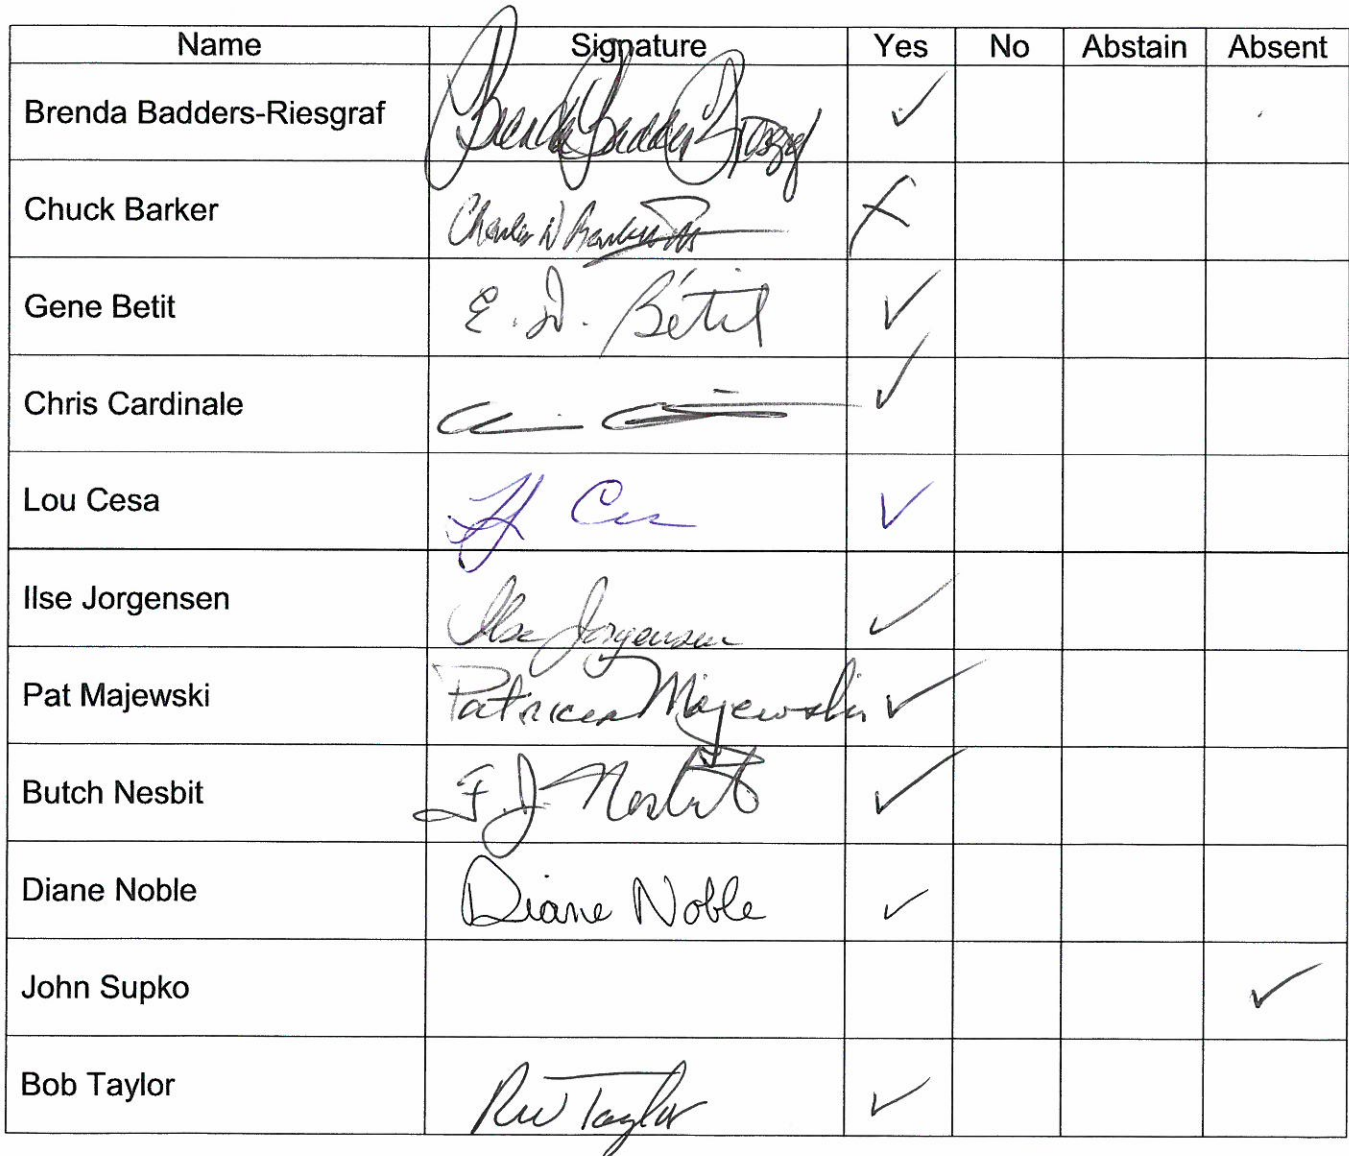 Name Signature Yes No Abstain Absent
Brenda Badders-Riesgraf Brenda Badders ✓
Chuck Barker Charles W Barker III X
Gene Betit E. D. Bétit ✓
Chris Cardinale ✓
Lou Cesa ✓
Ilse Jorgensen Ilse Jorgensen ✓
Pat Majewski Patricia Majewski ✓
Butch Nesbit F. J. Nesbit ✓
Diane Noble Diane Noble ✓
John Supko ✓
Bob Taylor RW Taylor ✓